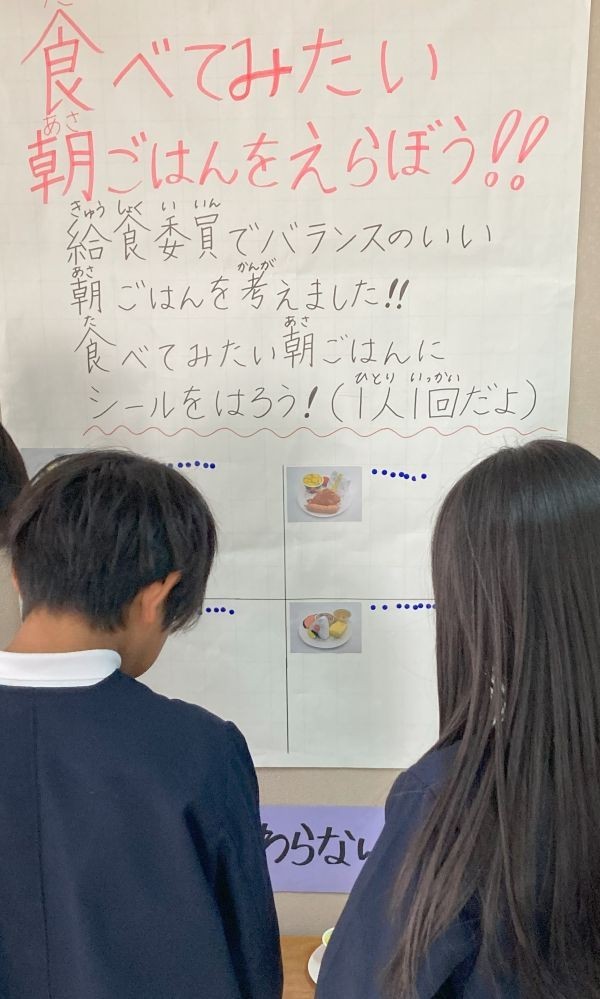 食べてみたい
朝ごはんをえらぼう!!
給食委員でバランスのいい
朝ごはんを考えました!!
食べてみたい朝ごはんに
シールをはろう!(1人1回だよ)
わらない